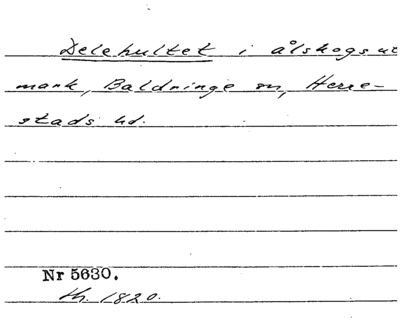 Delehultet i ålskogs ut
mark, Baldringe sn, Herre-
stads hd.
Nr 5630.
th. 1820.